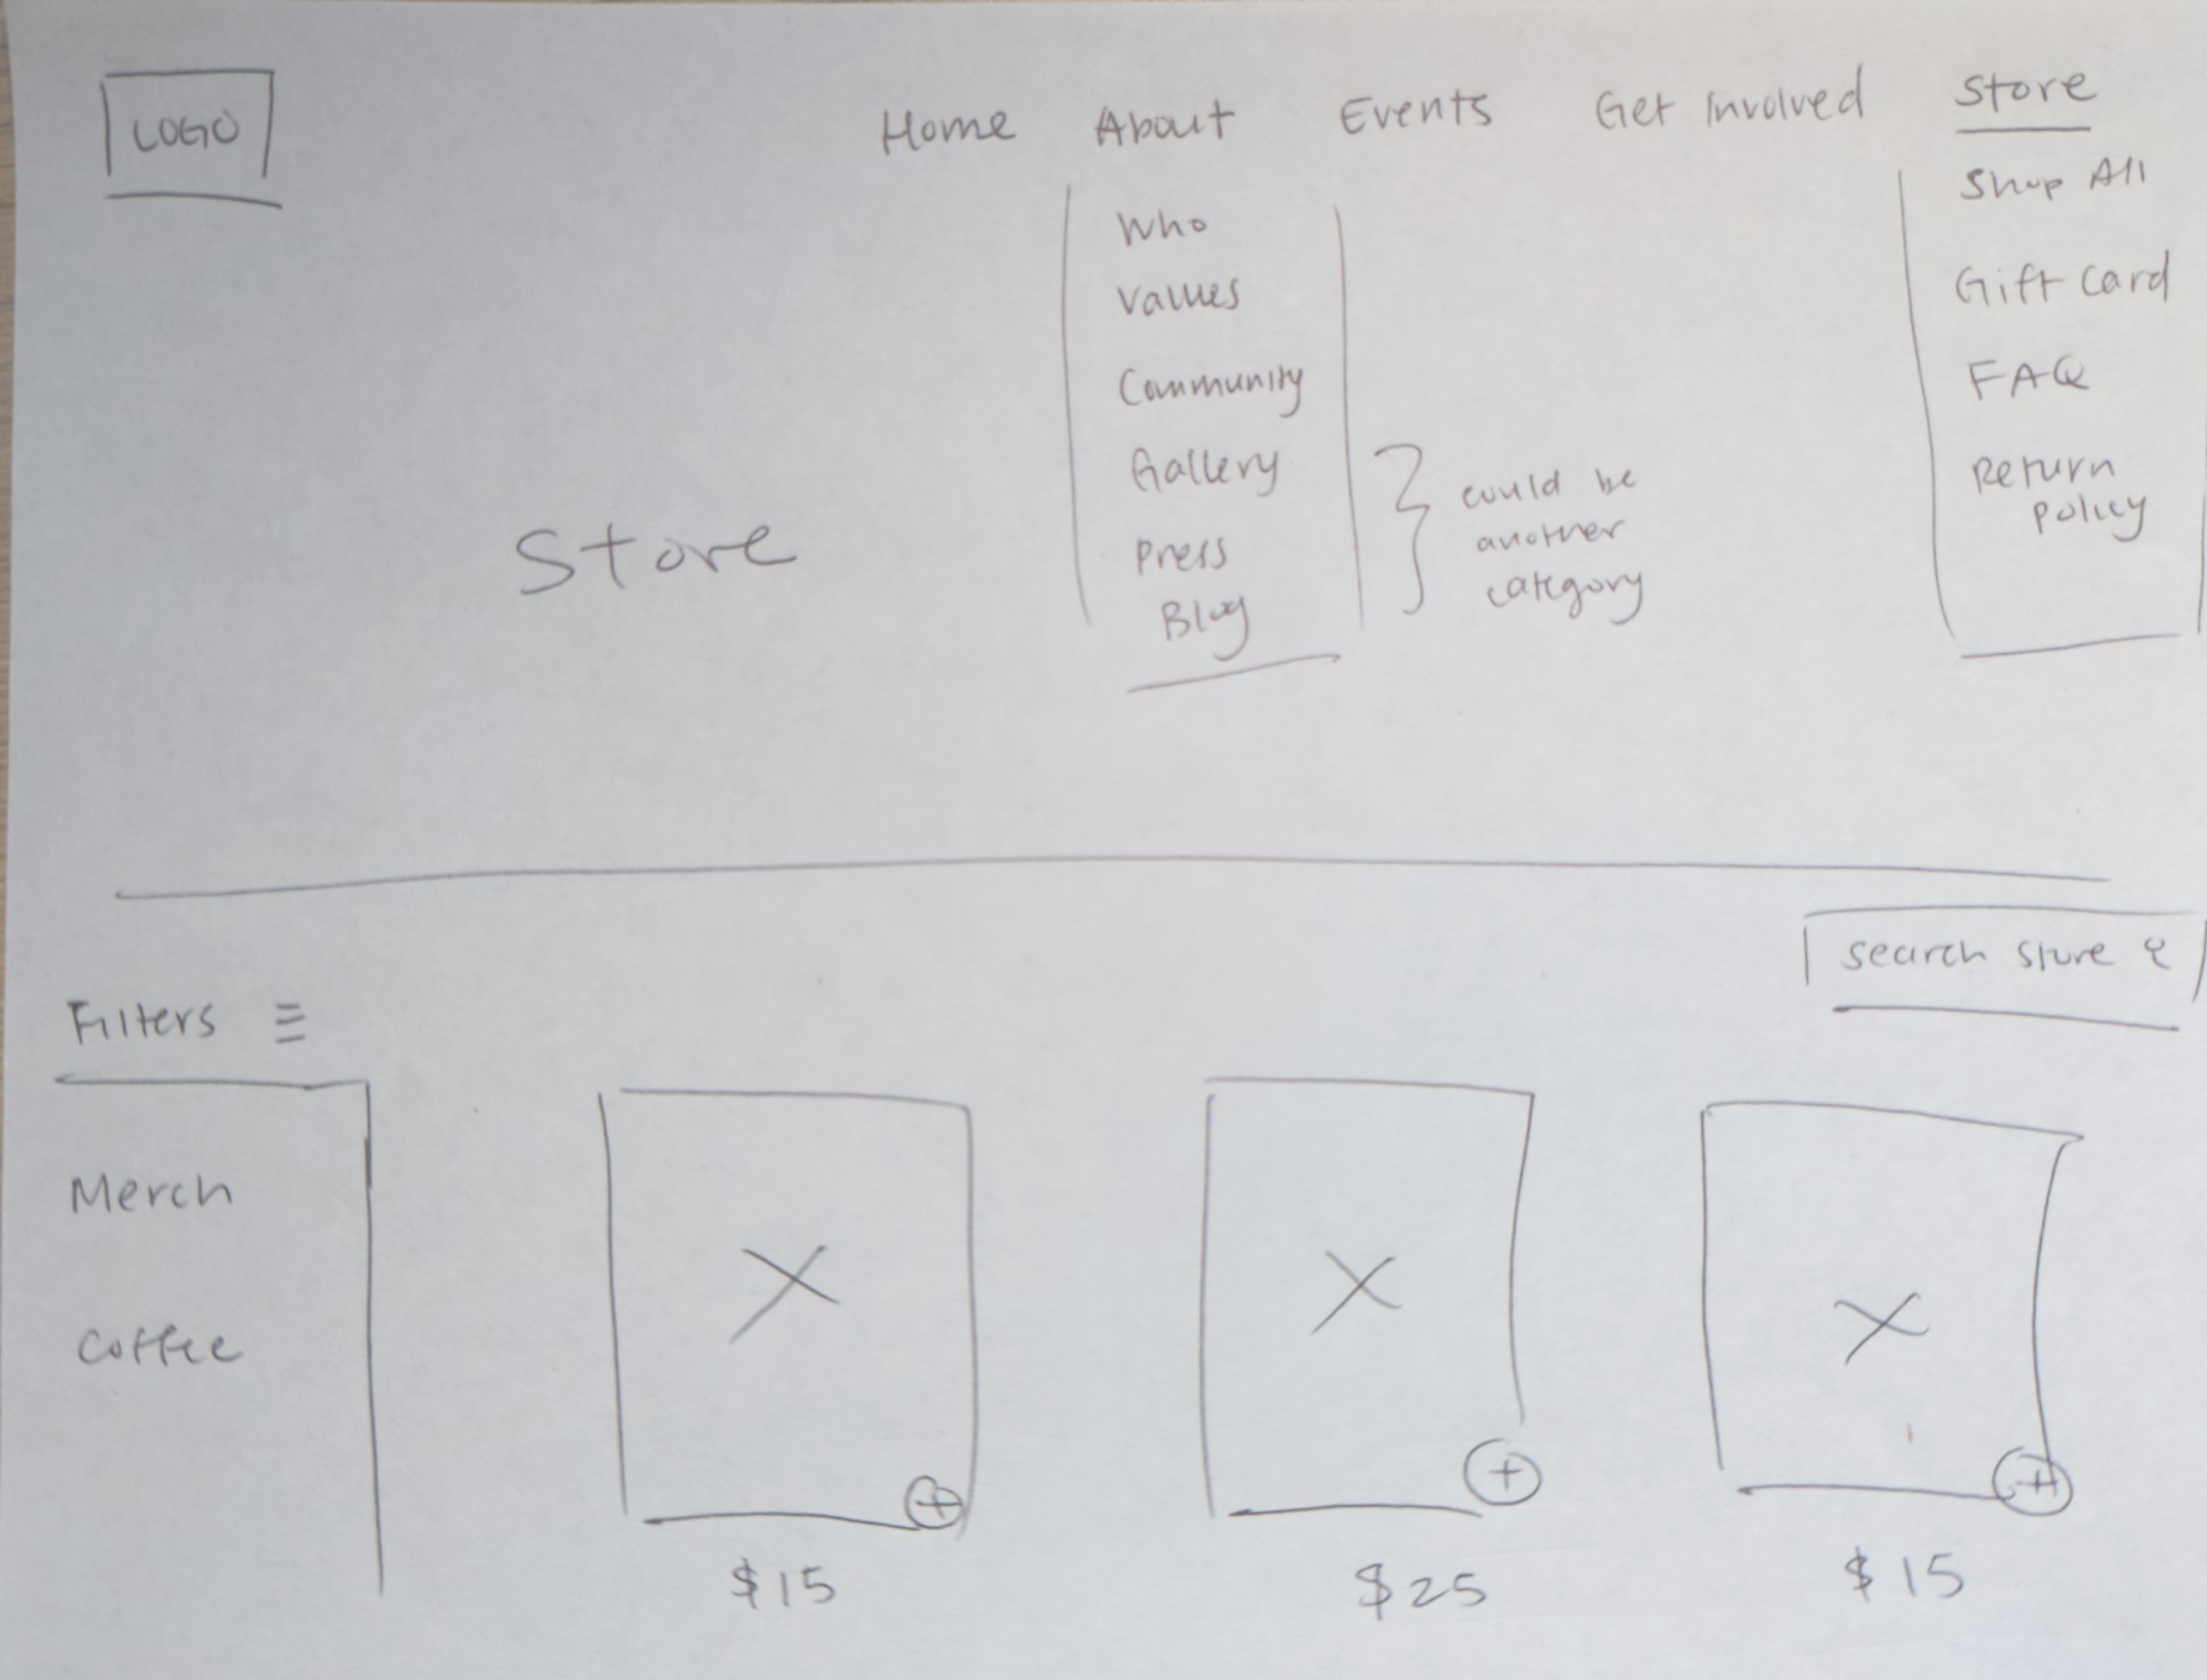 LOGO
Home About Events Get Involved Store
Who
Values
Community
Gallery
Press
Blog
could be
another
category
Shop All
Gift Card
FAQ
Return
Policy
Store
search store
Filters
Merch
Coffee
$15
$25
$15